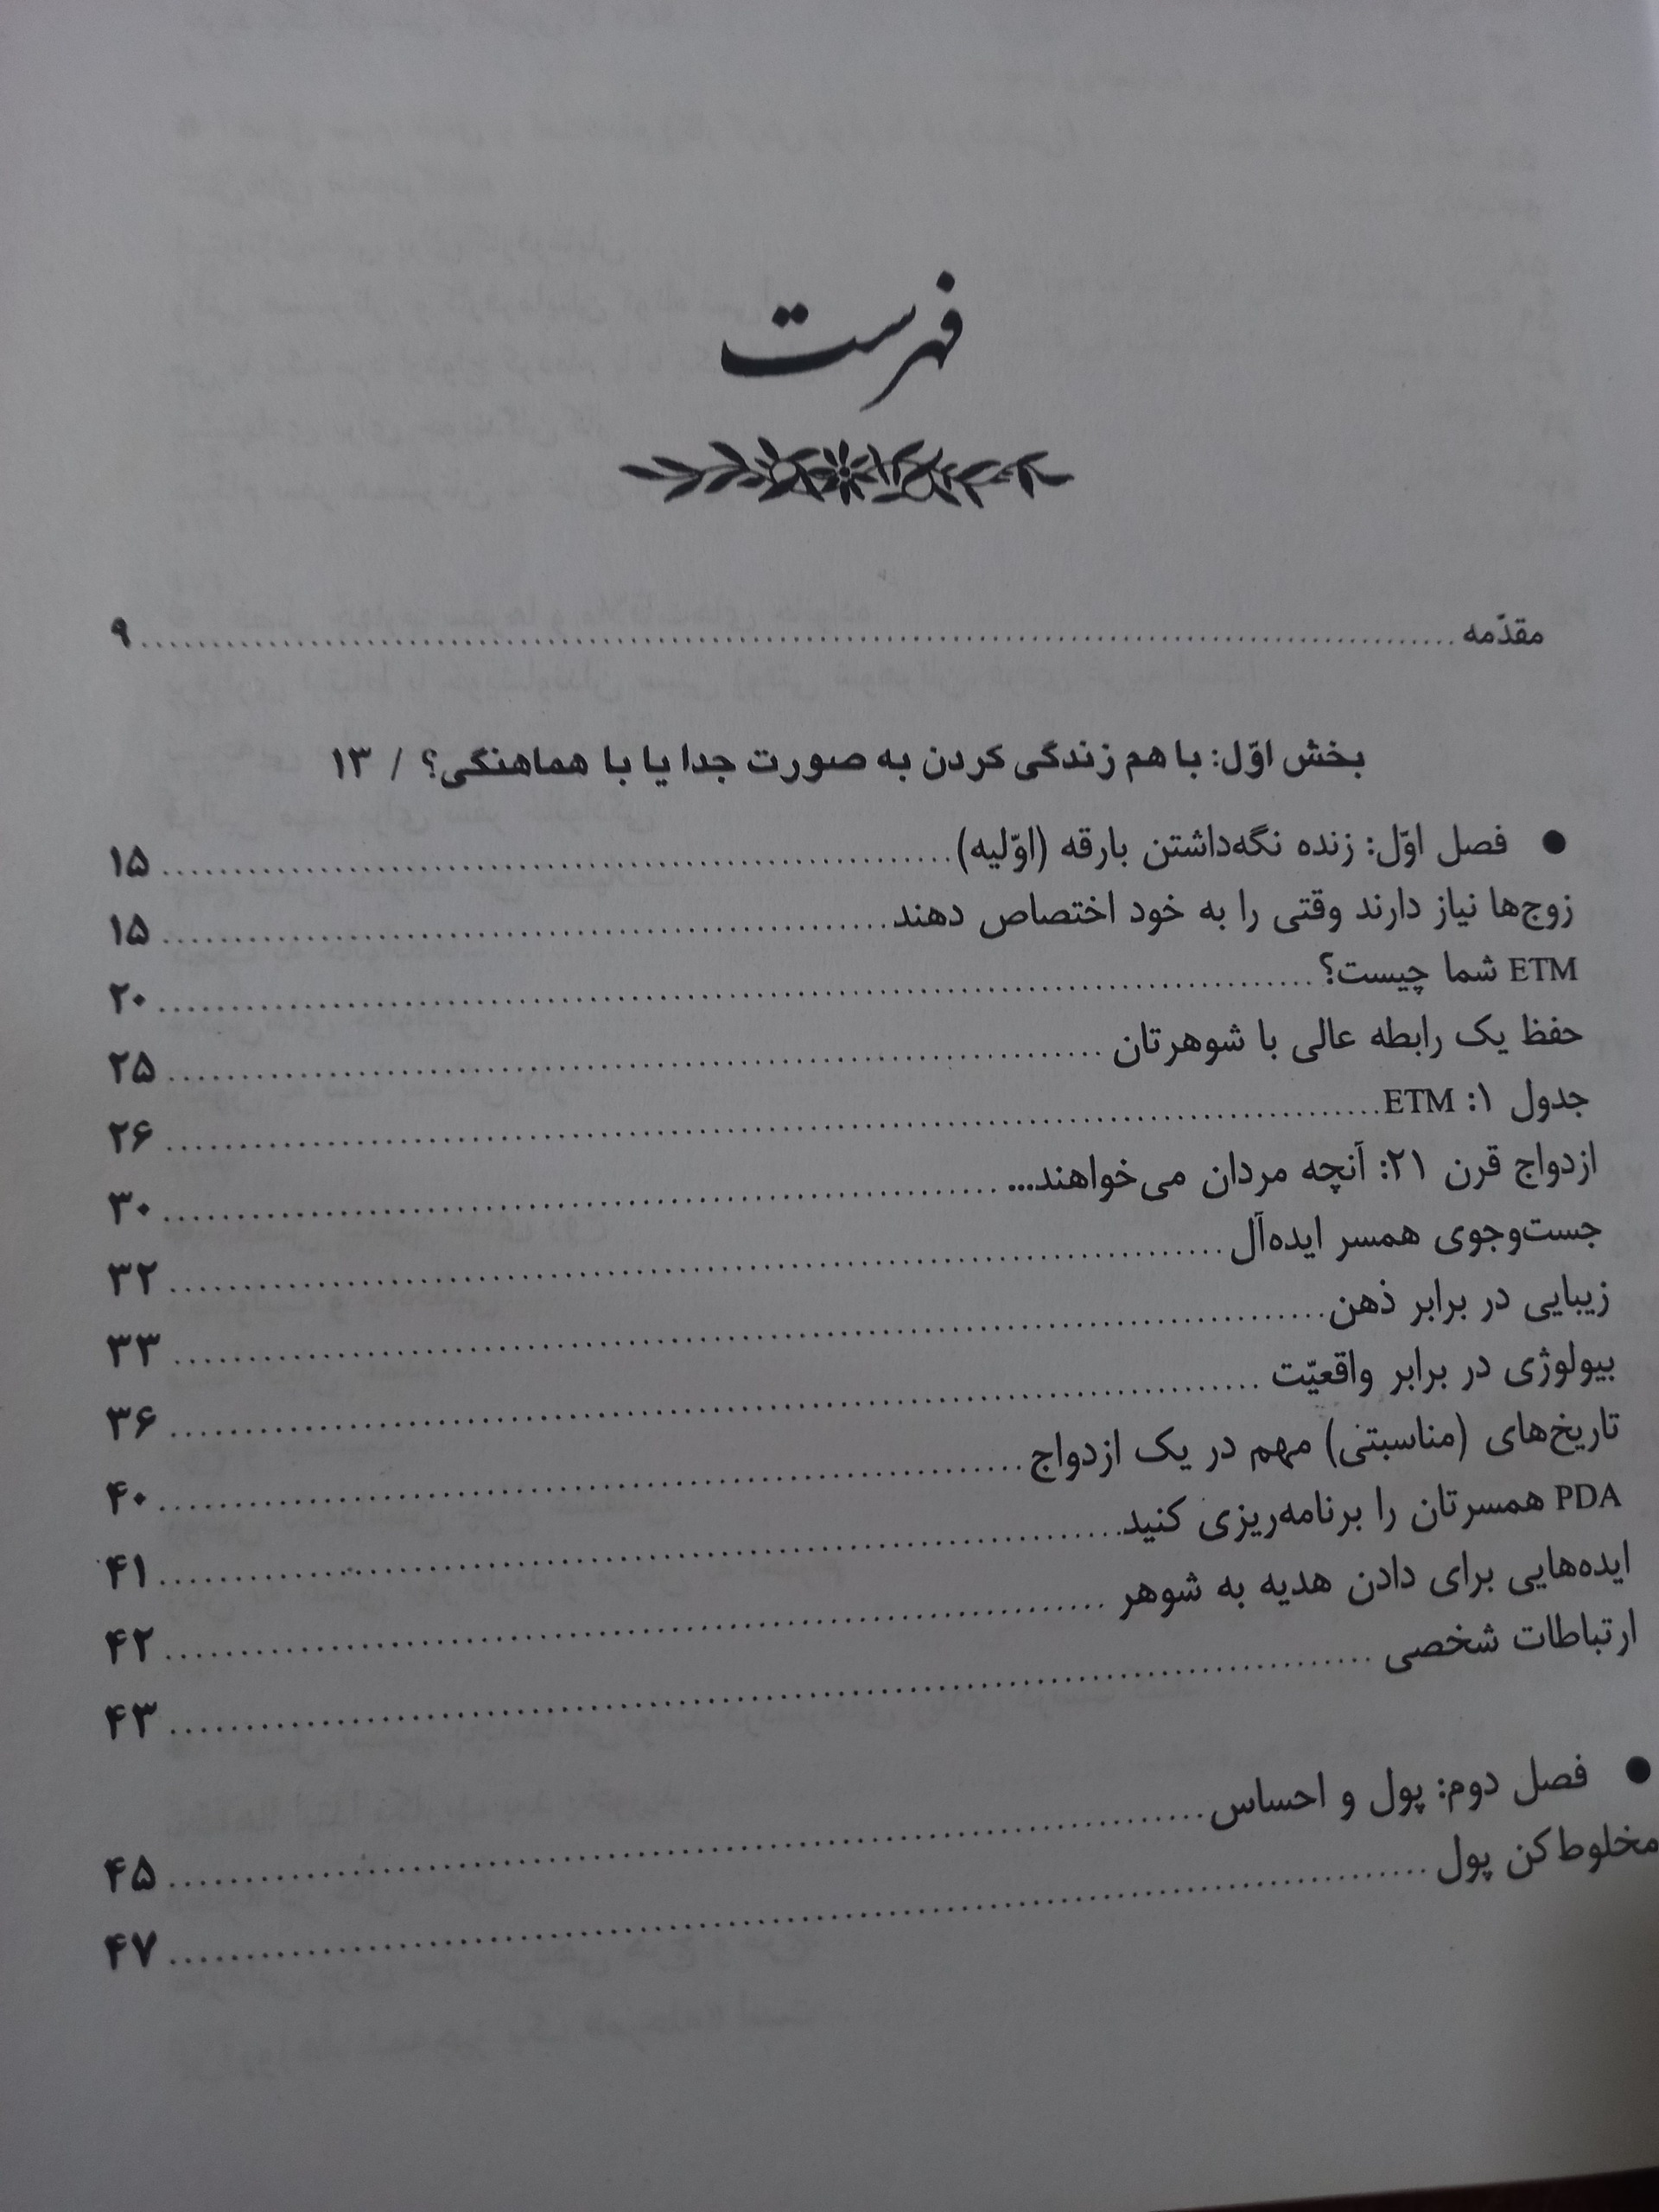 فهرست
مقدّمه ........ ۹
بخش اوّل: با هم زندگی کردن به صورت جدا یا با هماهنگی؟ / ۱۳
● فصل اوّل: زنده نگه‌داشتن بارقه (اوّلیه) ........ ۱۵
زوج‌ها نیاز دارند وقتی را به خود اختصاص دهند ........ ۱۵
ETM شما چیست؟ ........ ۲۰
حفظ یک رابطه عالی با شوهرتان ........ ۲۵
جدول ۱: ETM ........ ۲۶
ازدواج قرن ۲۱: آنچه مردان می‌خواهند... ........ ۳۰
جست‌وجوی همسر ایده‌آل ........ ۳۲
زیبایی در برابر ذهن ........ ۳۳
بیولوژی در برابر واقعیّت ........ ۳۶
تاریخ‌های (مناسبتی) مهم در یک ازدواج ........ ۴۰
PDA همسرتان را برنامه‌ریزی کنید ........ ۴۱
ایده‌هایی برای دادن هدیه به شوهر ........ ۴۲
ارتباطات شخصی ........ ۴۳
● فصل دوم: پول و احساس ........ ۴۵
مخلوط‌کن پول ........ ۴۷